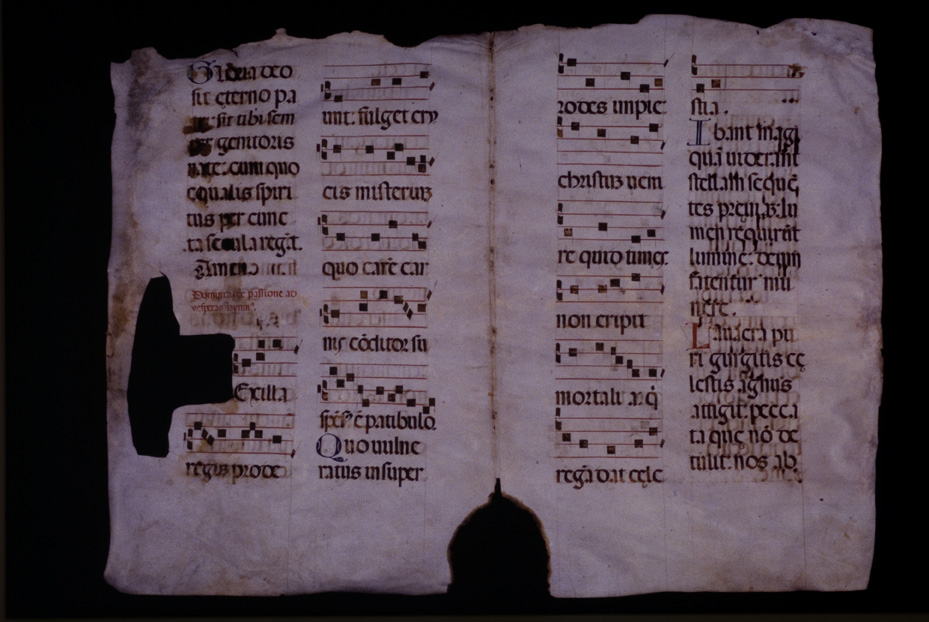 Gloria deo
sit eterno pa
sit tibi sem
genitoris
nate. cum quo
equalis spiri
tus per cunc
ta secula regit.
Amen
Dominica de passione ad
vesperas hymn9.
Exilla
regis prode
unt. fulget cry
cis misterium
quo carē car
nis cōditor su
ē patibulo.
Quo uulne
ratus insuper
rodes impie
christum ueni
re quid times
non eripit
mortalia q̄
regā dat cele
stia.
Ibant magi
quā uiderant
stellam seque
tes preuiam. lu
men requirūt
lumine. deum
fatentur mu
nere.
Lauacra pu
ri gurgitis ce
lestis agnus
attigit. pecca
ta que nō de
tulit. nos ab